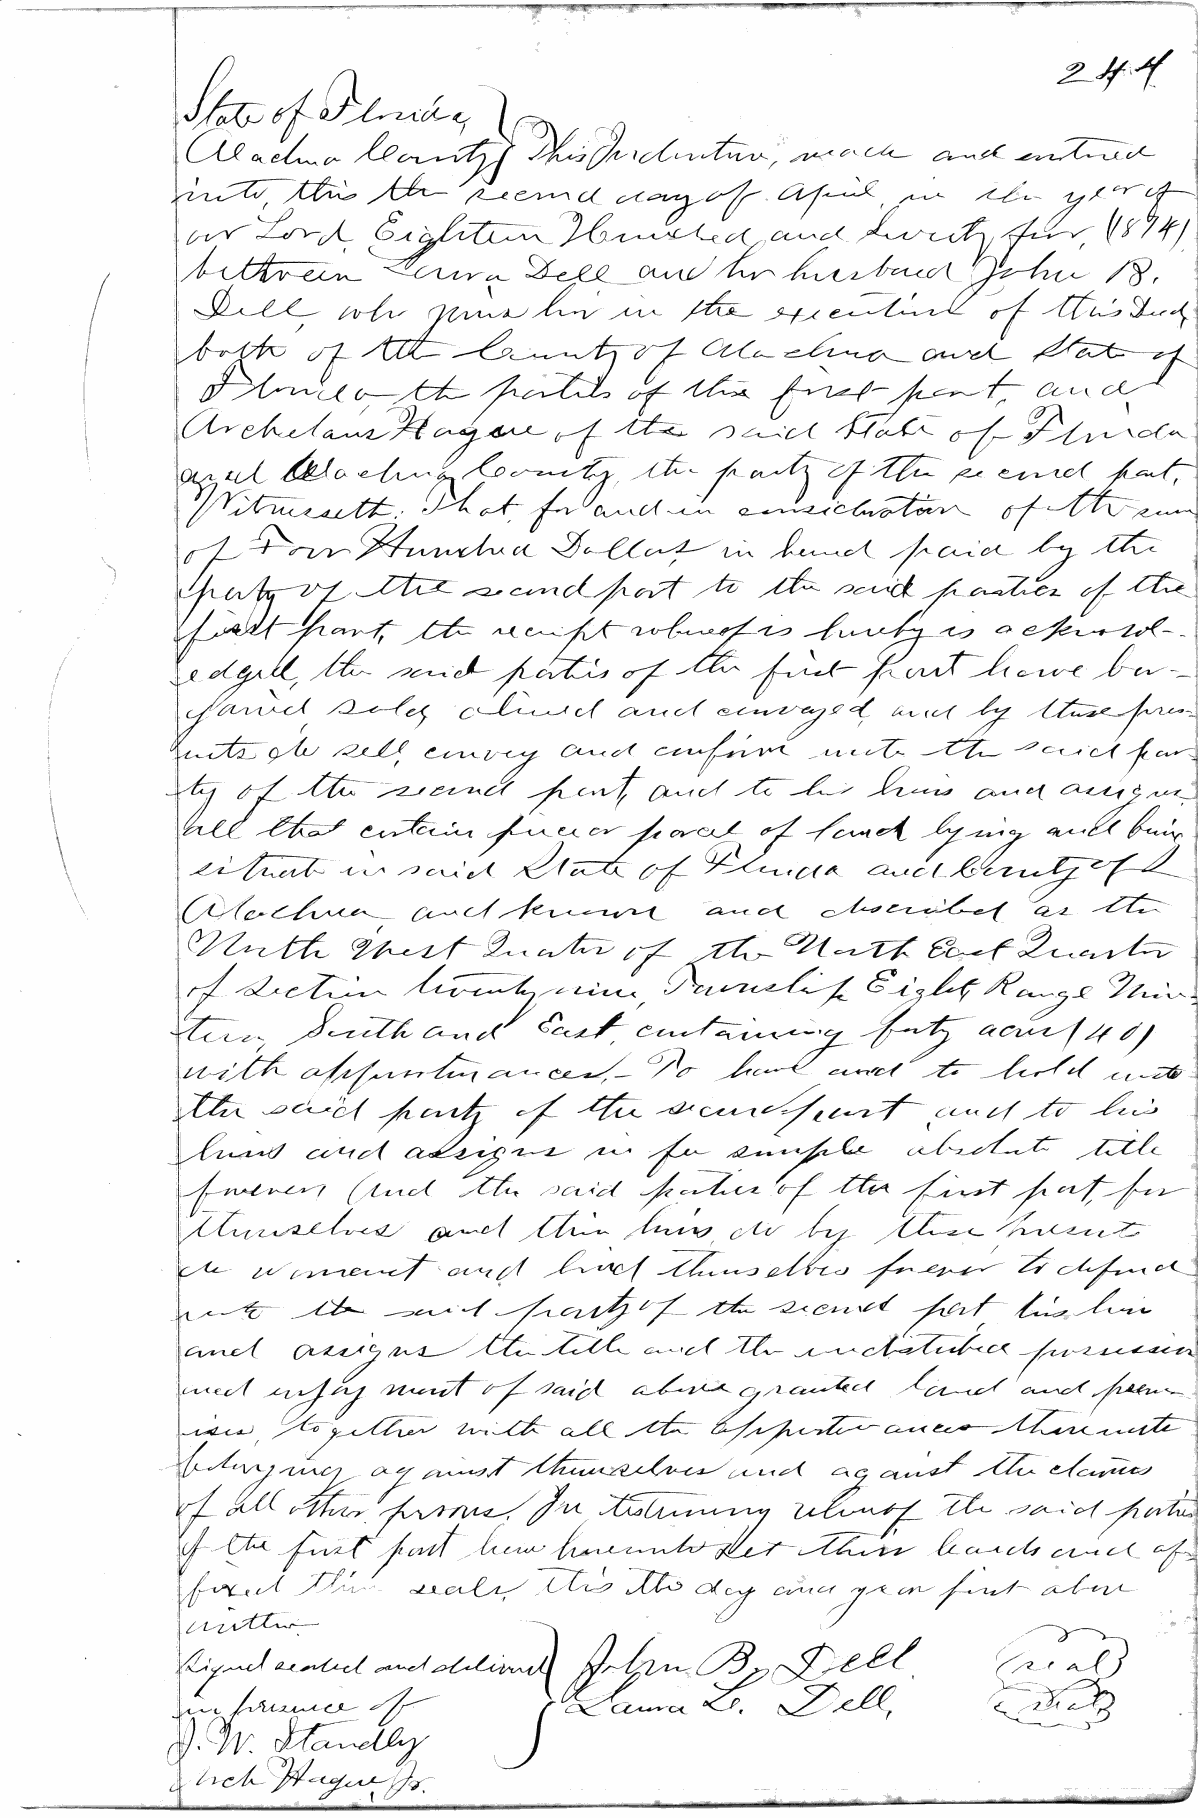 244
State of Florida,
Alachua County} This Indenture, made and entered
into, this the second day of April, in the year of
our Lord, Eighteen Hundred and Seventy four, (1874)
between Laura Dell and her husband John B.
Dell, who joins her in the execution of this Deed,
both of the County of Alachua and State of
Florida, the parties of the first part, and
Archelaus Hague of the said State of Florida
and Alachua County, the party of the second part,
Witnesseth: That, for and in consideration of the sum
of Four Hundred Dollars, in hand paid by the
party of the second part to the said parties of the
first part, the receipt whereof is hereby is acknowl-
edged, the said parties of the first part have bar-
gained, sold, aliened and conveyed, and by these pres-
ents do sell, convey and confirm unto the said par-
ty of the second part, and to his heirs and assigns,
all that certain piece or parcel of land lying and being
situate in said State of Florida and County of
Alachua, and known and described as the
North West Quarter of the North East Quarter
of Section twenty nine, Township Eight, Range Nine-
teen, South and East, containing forty acres (40)
with appurtenances,- To have and to hold unto
the said party of the second part and to his
heirs and assigns in fee simple absolute title
forever, And the said parties of the first part, for
themselves and their heirs, do by these presents
do warrant and bind themselves forever to defend
unto the said party of the second part, his heirs
and assigns the title and the undisturbed possession
and enjoyment of said above granted land and prem-
ises, together with all the appurtenances thereunto
belonging against themselves and against the claims
of all other persons. In testimony whereof the said parties
of the first part have hereunto set their hands and af-
fixed their seals, this the day and year first above
written.
Signed sealed and delivered } John B. Dell (Seal)
in presence of Laura L. Dell, (Seal)
J. W. Standly
Arch Hague, Jr.